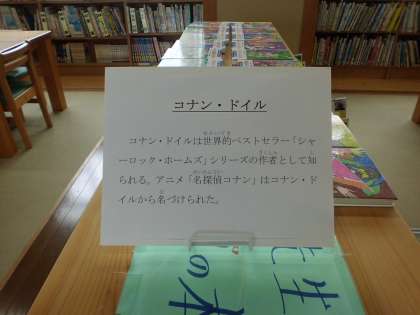 コナン・ドイル
コナン・ドイルは世界的ベストセラー「シャ
ーロック・ホームズ」シリーズの作者として知
られる。アニメ「名探偵コナン」はコナン・ド
イルから名づけられた。
先生
の本